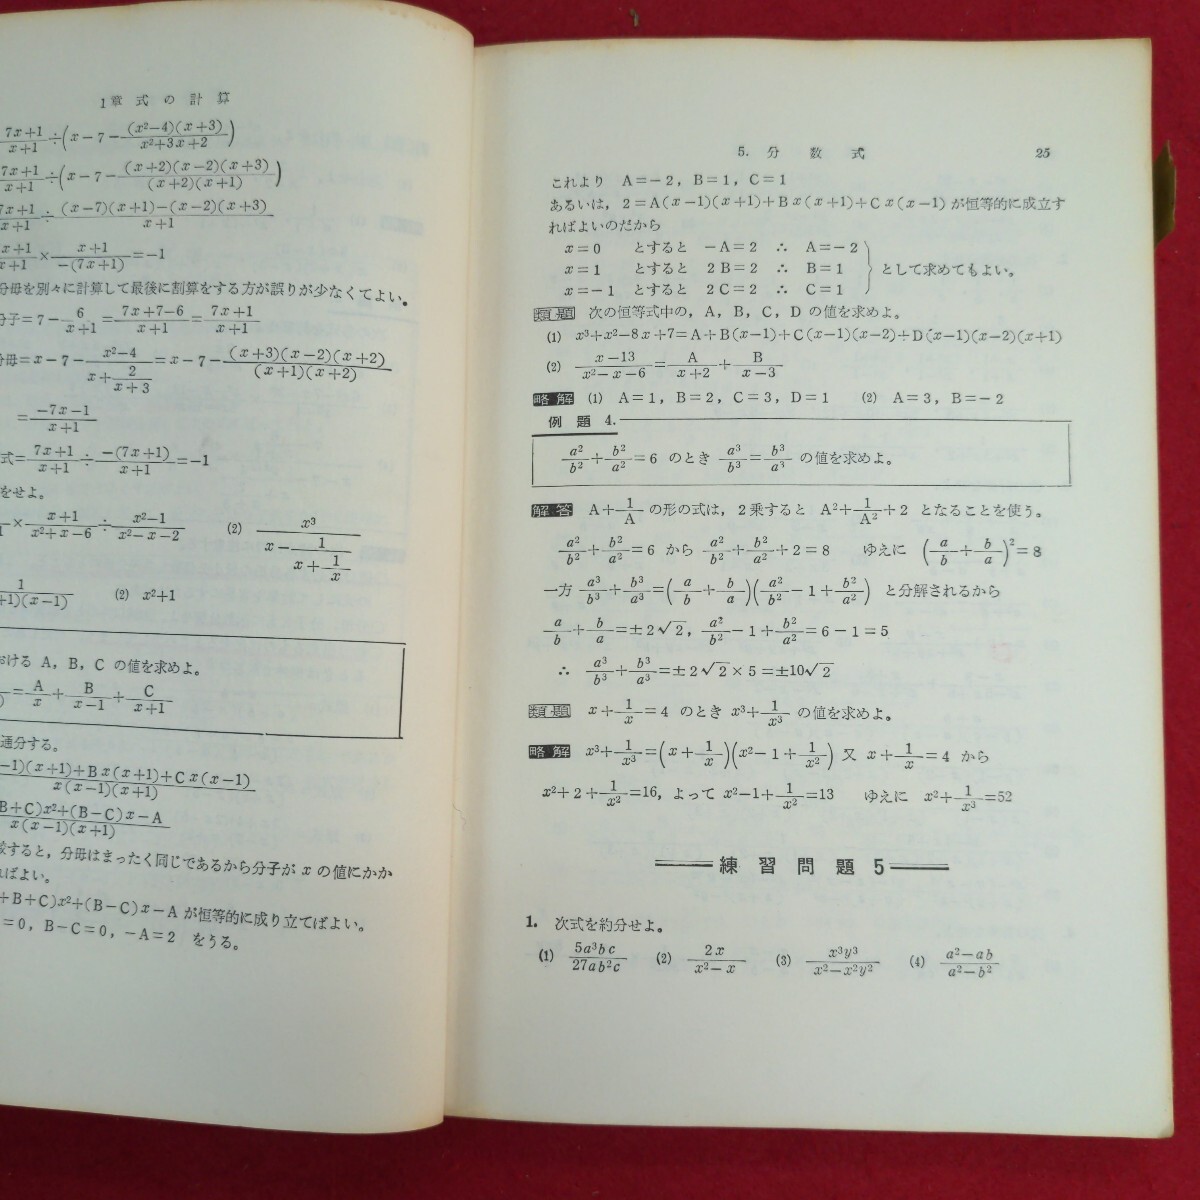 1章 式の計算
7x+1/x+1÷(x−7−(x²−4)(x+3)/x²+3x+2)
7x+1/x+1÷(x−7−(x+2)(x−2)(x+3)/(x+2)(x+1))
7x+1/x+1÷(x−7)(x+1)−(x−2)(x+3)/x+1
x+1/x+1×x+1/−(7x+1)=−1
分母を別々に計算して最後に割算をする方が誤りが少なくてよい。
分子=7−6/x+1=7x+7−6/x+1=7x+1/x+1
分母=x−7−x²−4/x+2/x+3=x−7−(x+3)(x−2)(x+2)/(x+1)(x+2)
=−7x−1/x+1
式=7x+1/x+1÷−(7x+1)/x+1=−1
をせよ。
×x+1/x²+x−6÷x²−1/x²−x−2 (2) x³/x−1/x+1/x
1/+1)(x−1) (2) x²+1
おける A, B, C の値を求めよ。
=A/x+B/x−1+C/x+1
通分する。
−1)(x+1)+Bx(x+1)+Cx(x−1)/x(x−1)(x+1)
B+C)x²+(B−C)x−A/x(x−1)(x+1)
較すると, 分母はまったく同じであるから分子が x の値にかか
ればよい。
+B+C)x²+(B−C)x−A が恒等的に成り立てばよい。
=0, B−C=0, −A=2 をうる。
5. 分数式 25
これより A=−2, B=1, C=1
あるいは, 2=A(x−1)(x+1)+Bx(x+1)+Cx(x−1) が恒等的に成立す
ればよいのだから
x=0 とすると −A=2 ∴ A=−2
x=1 とすると 2B=2 ∴ B=1 } として求めてもよい。
x=−1 とすると 2C=2 ∴ C=1
類題 次の恒等式中の, A, B, C, D の値を求めよ。
(1) x³+x²−8x+7=A+B(x−1)+C(x−1)(x−2)+D(x−1)(x−2)(x+1)
(2) x−13/x²−x−6=A/x+2+B/x−3
略解 (1) A=1, B=2, C=3, D=1 (2) A=3, B=−2
例題 4.
a²/b²+b²/a²=6 のとき a³/b³=b³/a³ の値を求めよ。
解答 A+1/A の形の式は, 2乗すると A²+1/A²+2 となることを使う。
a²/b²+b²/a²=6 から a²/b²+b²/a²+2=8 ゆえに (a/b+b/a)²=8
一方 a³/b³+b³/a³=(a/b+b/a)(a²/b²−1+b²/a²) と分解されるから
a/b+b/a=±2√2, a²/b²−1+b²/a²=6−1=5
∴ a³/b³+b³/a³=±2√2×5=±10√2
類題 x+1/x=4 のとき x³+1/x³ の値を求めよ。
略解 x³+1/x³=(x+1/x)(x²−1+1/x²) 又 x+1/x=4 から
x²+2+1/x²=16, よって x²−1+1/x²=13 ゆえに x²+1/x³=52
練習問題 5
1. 次式を約分せよ。
(1) 5a³bc/27ab²c (2) 2x/x²−x (3) x³y³/x²−x²y² (4) a²−ab/a²−b²